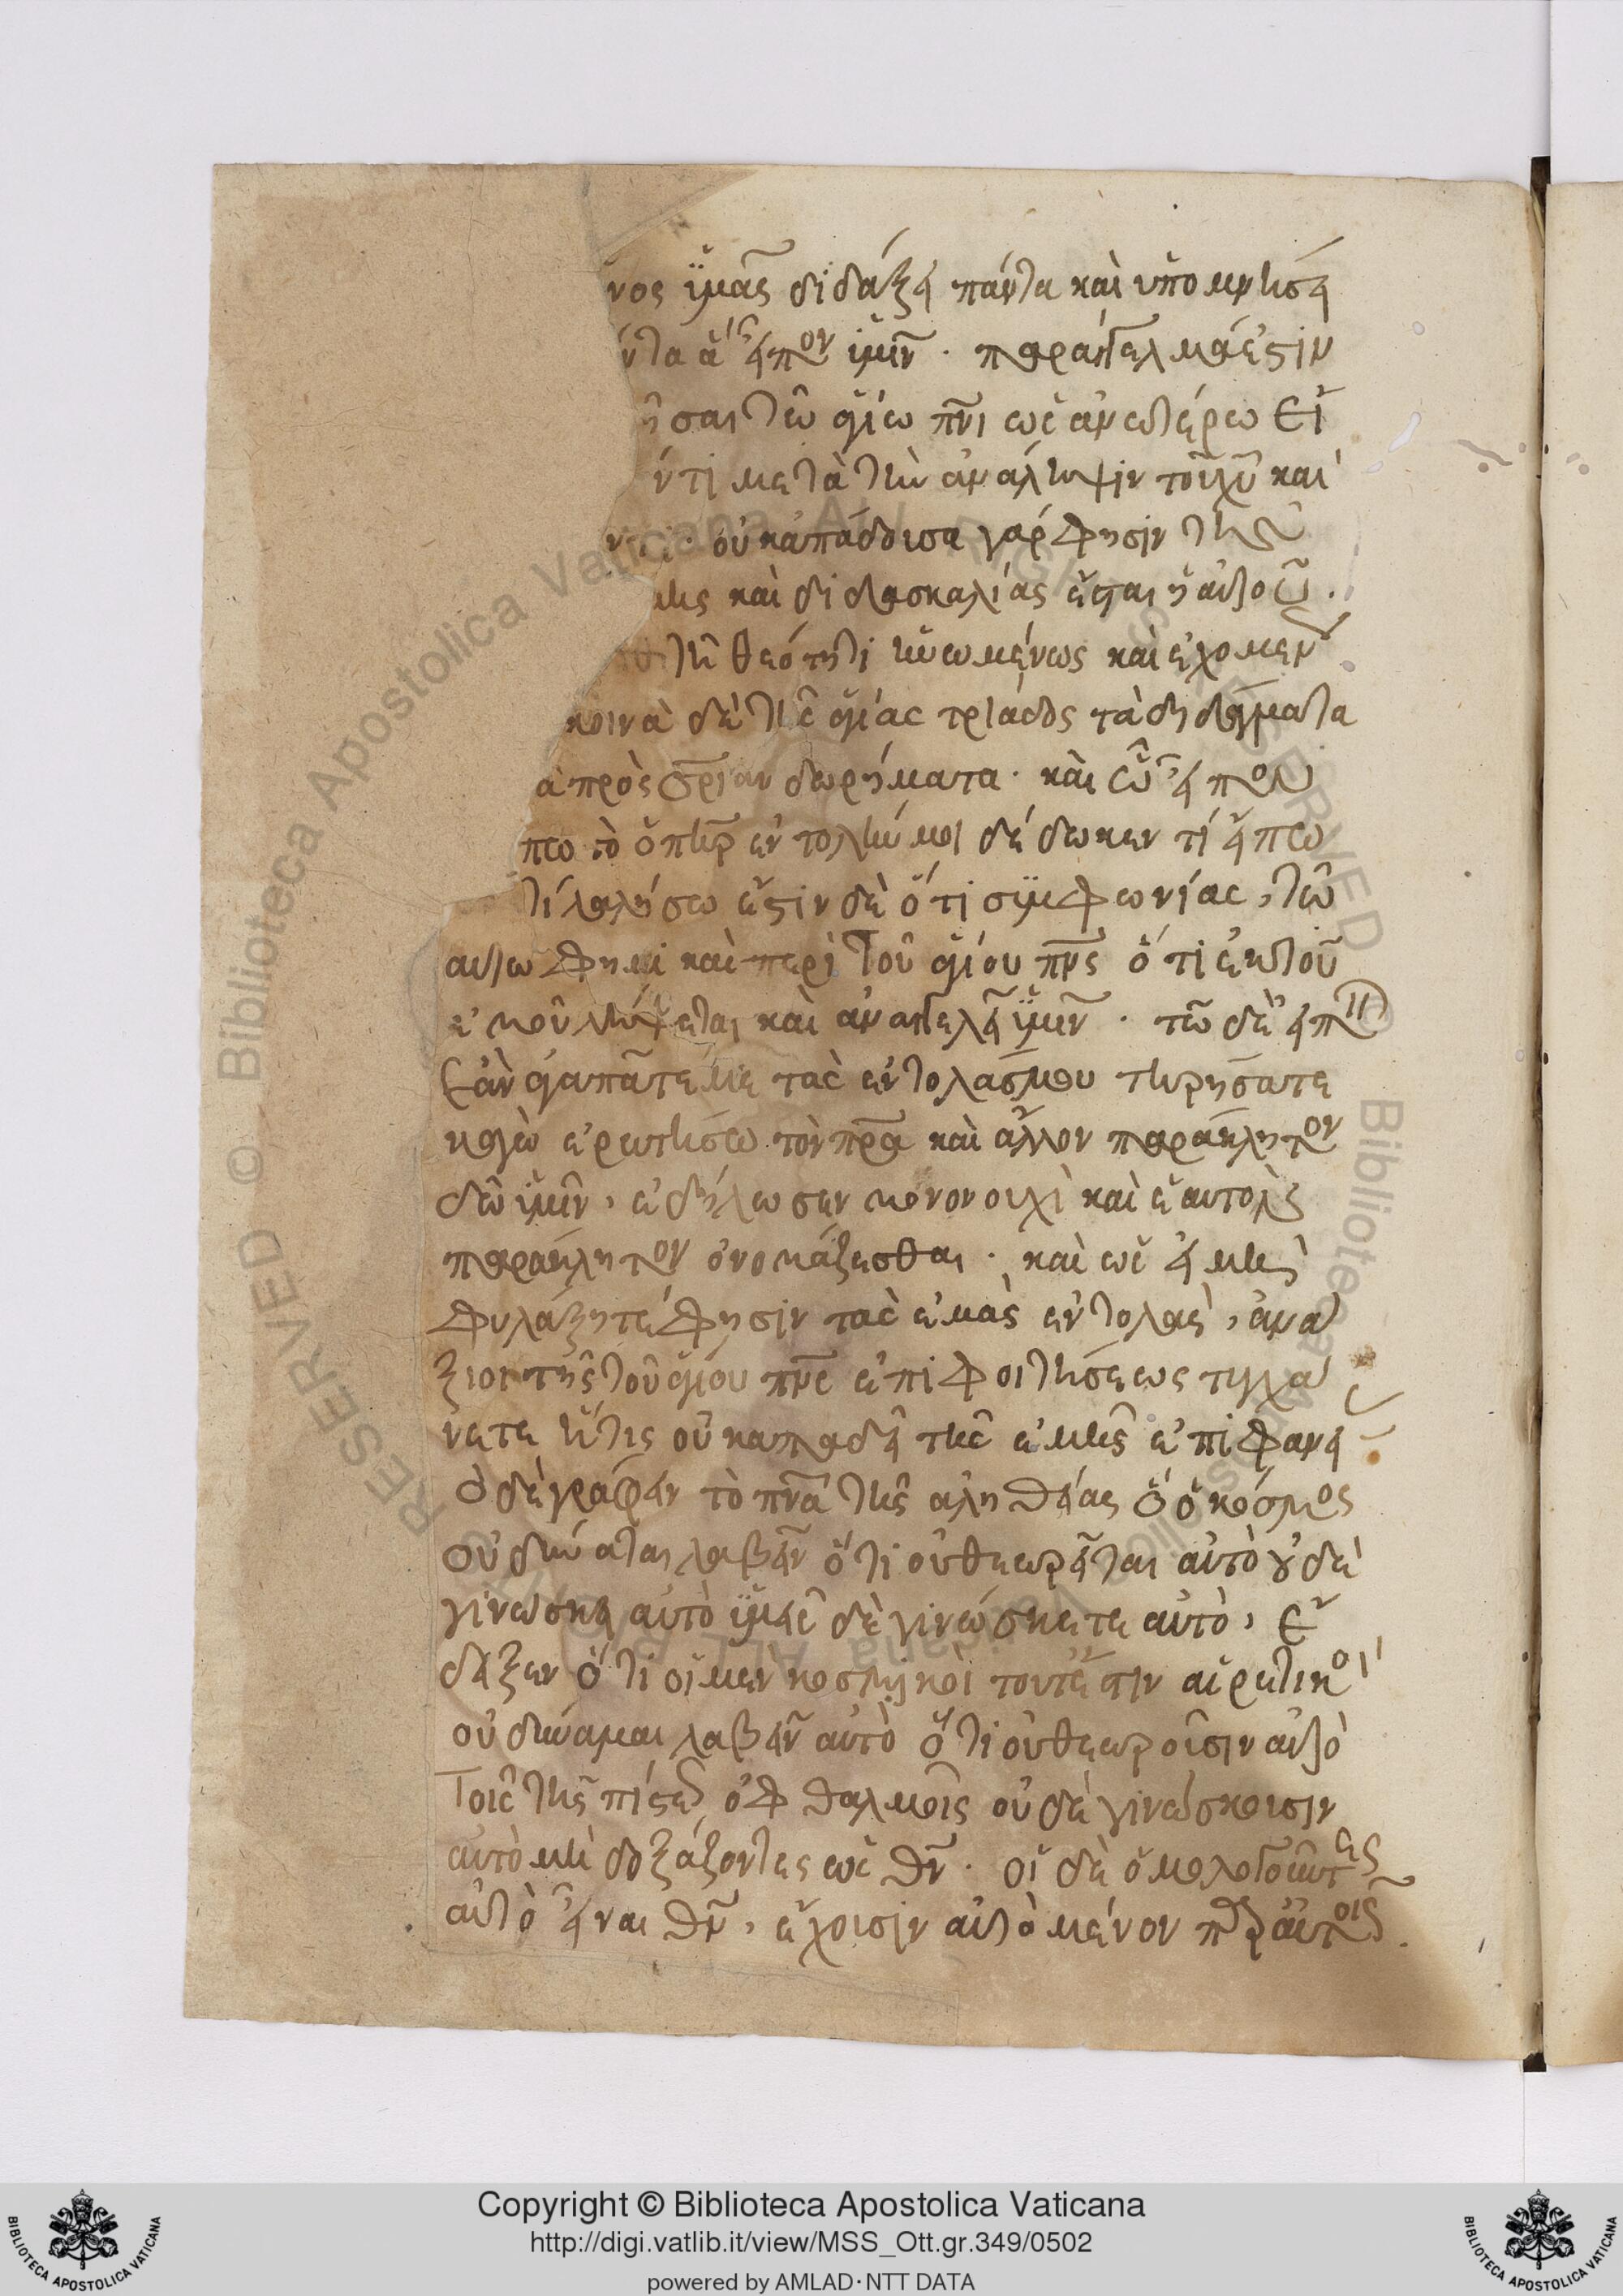 νος ὑμᾶς διδάξει πάντα καὶ ὑπομνήσει
ντα ἃ εἶπον ὑμῖν · παράγγελμά ἐστιν
ῆσαι τῶ ἁγίω πνι ὡς ἀνωτέρω
ντι μετὰ τὴν ἀνάληψιν τοῦ χυ καὶ
οὐκ ἀπάδουσα γάρ φησιν τῆς
μῆς καὶ διδασκαλίας ἔσται ἡ αὐτοῦ .
τῆ θεότητι ἡνωμένως καὶ ἐχομεν
κοινὰ δὲ τῆς ἁγίας τριάδος τὰ διδάγματα
ὰ πρὸς σρίαν δωρήματα · καὶ ὡς εἶπον
πω τὸ ὁ πηρ ἐντολήν μοι δέδωκεν τί εἴπω
τί λαλήσω ἔστιν δὲ ὅτι συμφωνίας , τῶ
αὐτῶ φημι καὶ περὶ τοῦ ἁγίου πνς ὅτι ἐκ τοῦ
ἐμοῦ λήψεται καὶ ἀναγγελεῖ ὑμῖν . τῶ δὲ εἰπεῖν
ἐὰν ἀγαπᾶτέ με τὰς ἐντολάς μου τηρήσατε
κἀγὼ ἐρωτήσω τὸν πρα καὶ ἄλλον παράκλητον
δῶ ὑμῖν , ἐδήλωσεν μονονουχὶ καὶ ἑαυτὸν
παράκλητον ὀνομάζεσθαι · καὶ ὡς εἰ μὴ
φυλάξητέ φησιν τὰς ἐμὰς ἐντολὰς , ἀνά
ξιοι τῆς τοῦ ἁγίου πνς ἐπιφοιτήσεως τυγχά
νετε ἥτις οὐκ ἀπαδεῖ τῆς ἐμῆς ἐπιφανεί
ὁ δὲ γράφειν τὸ πνα τῆς ἀληθείας ὃ ὁ κόσμος
οὐ δύναται λαβεῖν ὅτι οὐ θεωρεῖται αὐτὸ οὐδὲ
γινώσκει αὐτὸ ὑμεῖς δὲ γινώσκετε αὐτὸ , ἔ
δειξεν ὅτι οἱ μεν κοσμικοὶ τουτέστιν αἱρετικοὶ
οὐ δύναμαι λαβεῖν αὐτὸ ὅτι οὐ θεωροῦσιν αὐτὸ
τοῖς τῆς πίστεως ὀφθαλμοῖς οὐδὲ γινώσκουσιν
αὐτὸ μὴ δοξάζοντες ὡς θν · οἱ δὲ ὁμολογοῦντες
αὐτὸ εἶναι θν , ἔχουσιν αὐτὸ μένον παρ' αὐτοῖς .
Copyright © Biblioteca Apostolica Vaticana
http://digi.vatlib.it/view/MSS_Ott.gr.349/0502
powered by AMLAD·NTT DATA
BIBLIOTECA APOSTOLICA VATICANA
BIBLIOTECA APOSTOLICA VATICANA